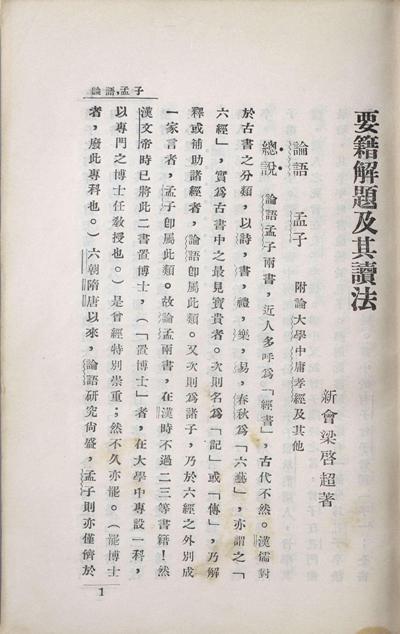 論語,孟子
要籍解題及其讀法
新會梁啓超著
論語　孟子　附論大學中庸孝經及其他
總說　論語孟子兩書,近人多呼爲「經書」,古代不然。漢儒對
於古書之分類,以詩,書,禮,樂,易,春秋爲「六藝」,亦謂之「
六經」,實爲古書中之最見寶貴者。次則名爲「記」或「傳」,乃解
釋或補助諸經者,論語卽屬此類。又次則爲諸子,乃於六經之外別成
一家言者,孟子卽屬此類。故論孟兩書,在漢時不過二三等書籍!然
漢文帝時已將此二書置博士,(「置博士」者,在大學中專設一科,
以專門之博士任敎授也。)是曾經特別崇重;然不久亦罷。(罷博士
者,廢此專科也。)六朝隋唐以來,論語硏究尙盛,孟子則亦僅儕於
1